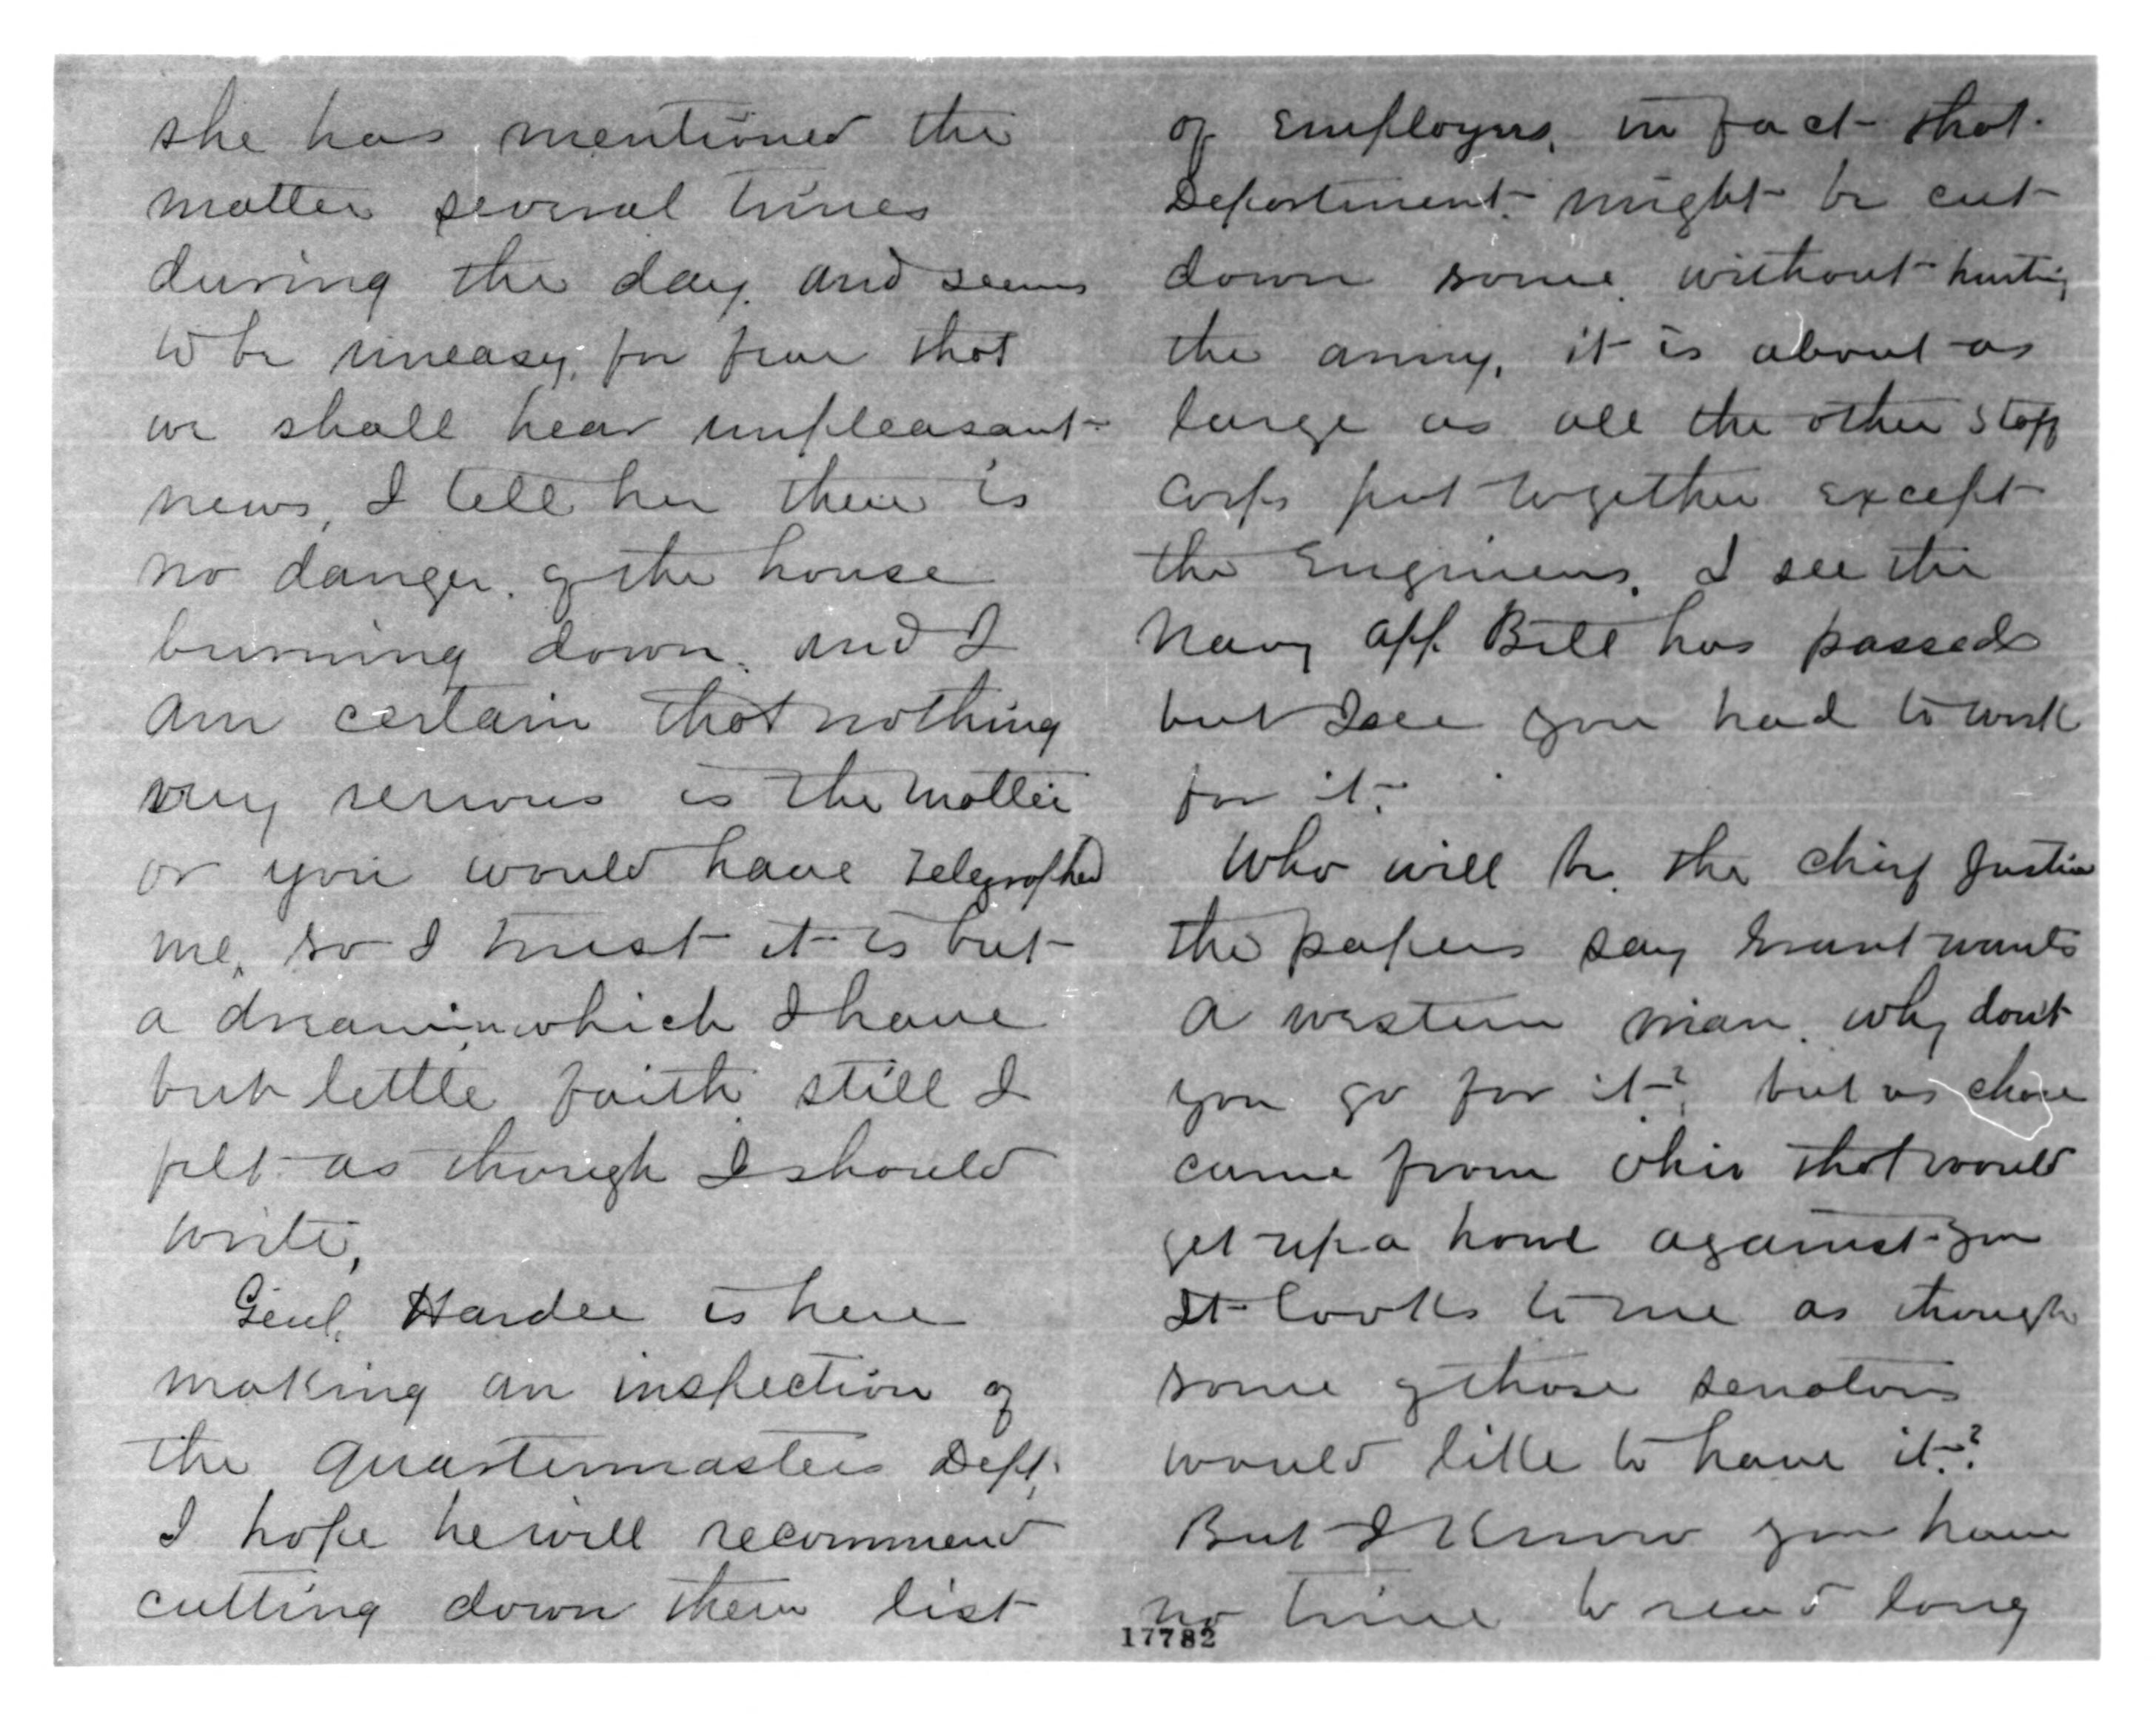 she has mentioned the
matter several times
during the day. and seems
to be uneasy, for fear that
we shall hear unpleasant
news, I tell her there is
no danger. of the house
burning down. and I
am certain that nothing
very serious is the matter
or you would have telegraphed
me, so I trust it is but
a dream, in which I have
but little faith still I
felt as though I should
write,
Genl. Hardee is here
making an inspection of
the Quartermasters Dept,
I hope he will recommend
cutting down their list
of Employees, in fact that
Department might be cut
down some without hurting
the army, it is about as
large as all the other Staff
Corps put together except
the Engineers. I see the
Navy App. Bill has passed
but I see you had to work
for it.
Who will be the Chief Justice
the papers say Grant wants
a western man. why don't
you go for it? but as Chase
came from Ohio that would
get up a howl against you
It looks to me as though
some of those senators
would like to have it?
But I know you have
no time to read long
17782